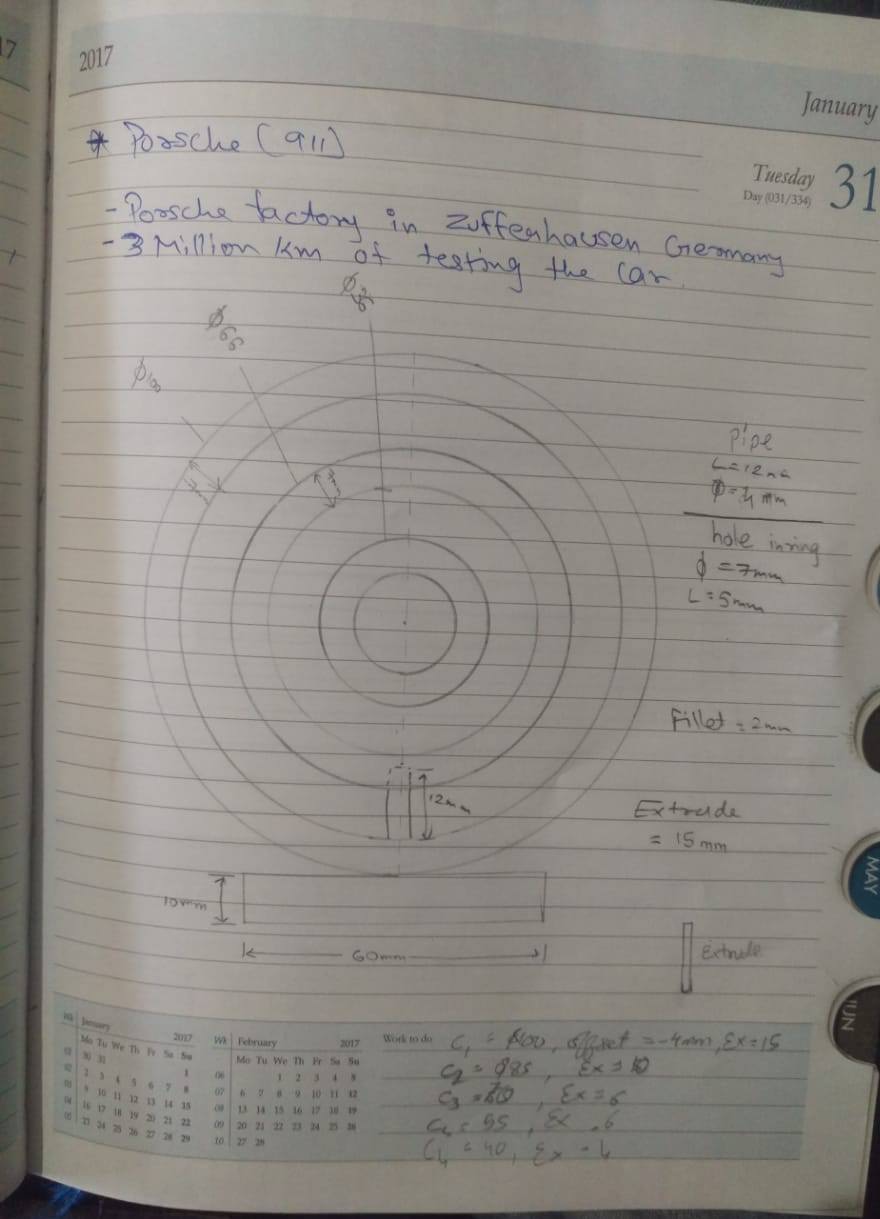 17
2017
January
Tuesday
Day (031/334)
31
* Porsche (911)
- Porsche factory in Zuffenhausen Germany
- 3 Million km of testing the car.
ϕ66
ϕ100
Pipe
L=12mm
ϕ=4mm
hole in ring
ϕ=7mm
L=5mm
Fillet = 2mm
12mm
Extrude
= 15mm
10mm
60mm
Extrude
MAY
JUN
Wk January 2017
Mo Tu We Th Fr Sa Su
01 30 31 1
02 2 3 4 5 6 7 8
03 9 10 11 12 13 14 15
04 16 17 18 19 20 21 22
05 23 24 25 26 27 28 29
Wk February 2017
Mo Tu We Th Fr Sa Su
06 1 2 3 4 5
07 6 7 8 9 10 11 12
08 13 14 15 16 17 18 19
09 20 21 22 23 24 25 26
10 27 28
Work to do
C1 = ϕ100, offset = -4mm, Ex=15
C2 = ϕ85, Ex=10
C3 = , Ex=6
= 55, Ex . 6
C4 = 40, Ex - 4